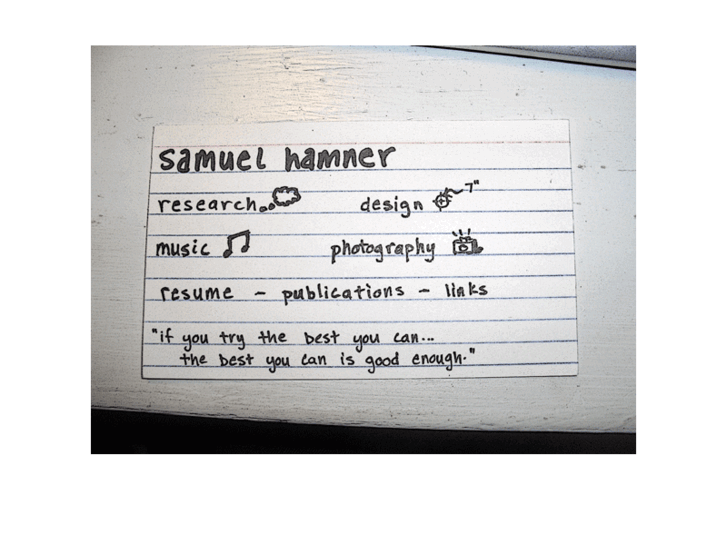 samuel hamner
research design 7"
music photography
resume - publications - links
"if you try the best you can...
the best you can is good enough."